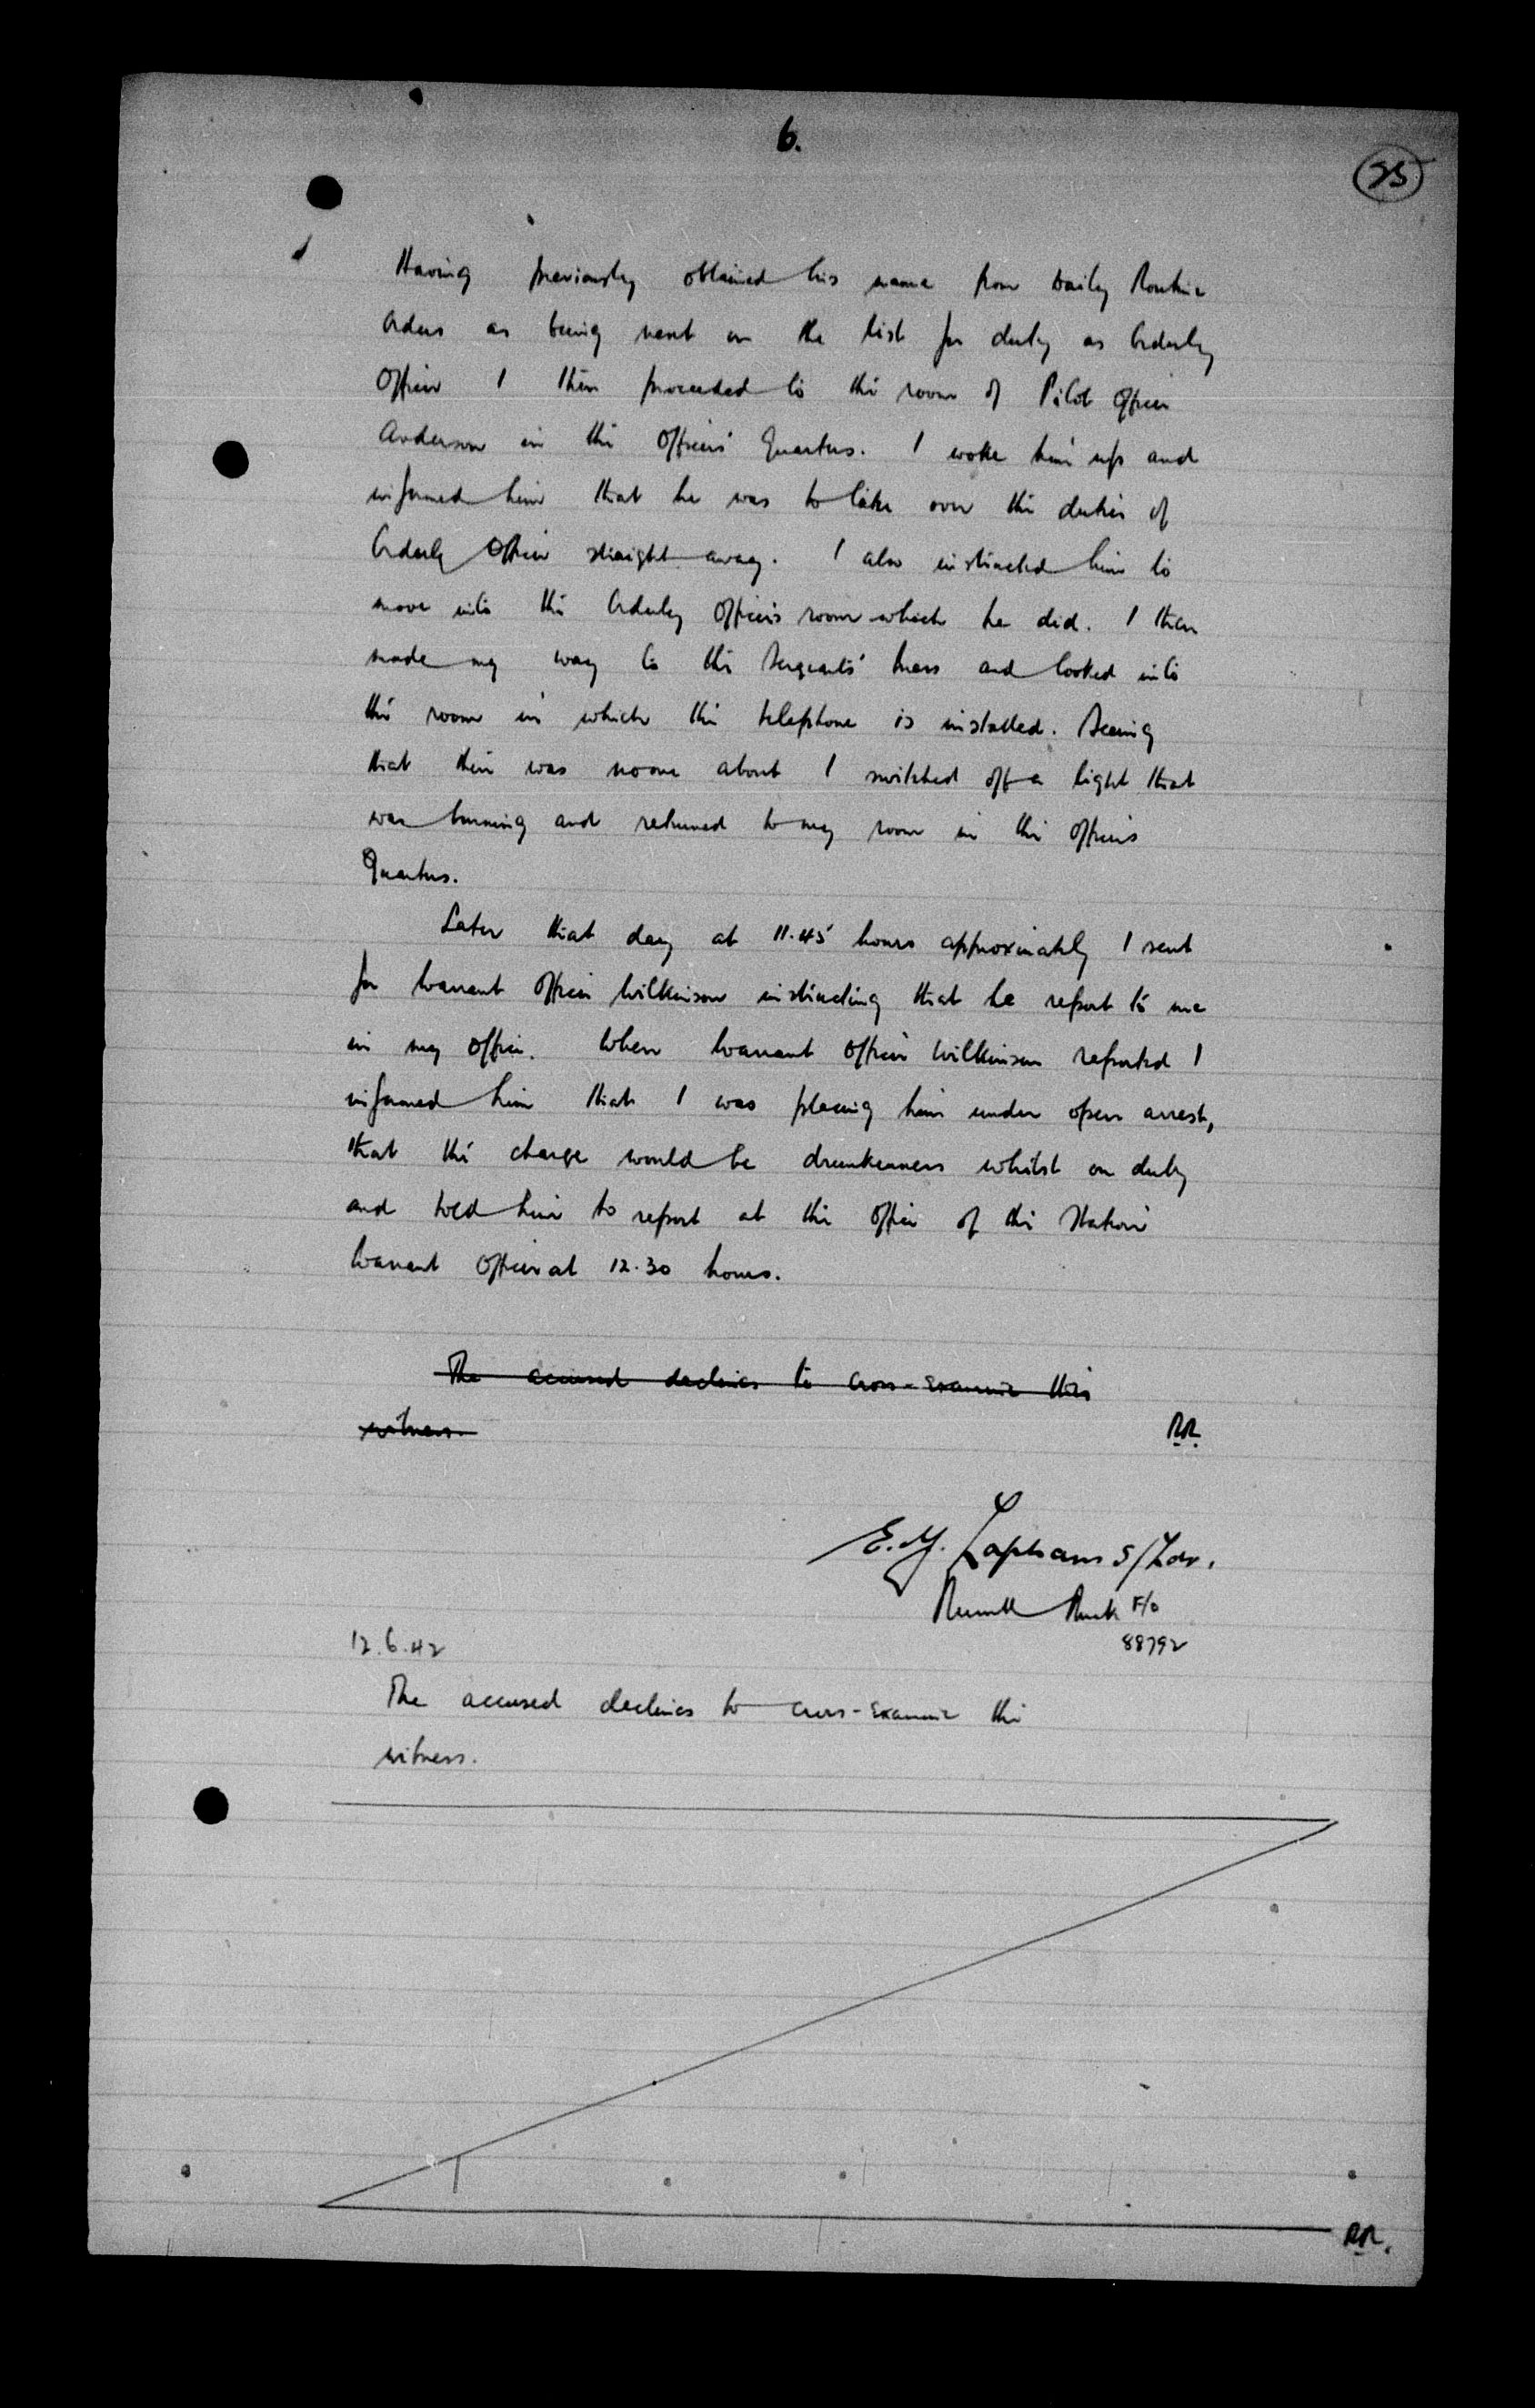 6.
25
Having previously obtained his name from Daily Routine
Orders as being next on the list for duty as Orderly
Officer I then proceeded to the room of Pilot Officer
Anderson in the Officers' Quarters. I woke him up and
informed him that he was to take over the duties of
Orderly Officer straight away. I also instructed him to
move into the Orderly Officers room which he did. I then
made my way to the Sergeants' Mess and looked into
the room in which the telephone is installed. Seeing
that there was noone about I switched off a light that
was burning and returned to my room in the Officers
Quarters.
Later that day at 11.45 hours approximately I sent
for Warrant Officer Wilkinson instructing that he report to me
in my office. When Warrant Officer Wilkinson reported I
informed him that I was placing him under open arrest,
that the charge would be drunkenness whilst on duty
and told him to report at the office of the Station
Warrant Officer at 12.30 hours.
The accused declines to cross-examine this
witness.
RR.
E.Y. Lapham S/Ldr.
F/O
88792
12.6.42
The accused declines to cross-examine this
witness.
RR.